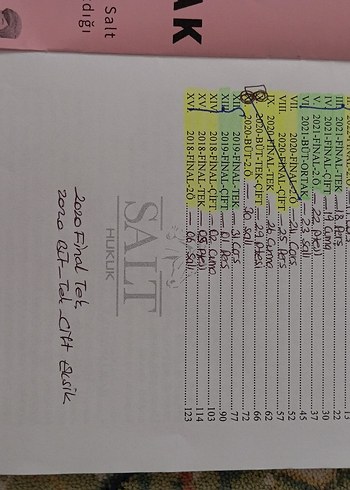 AK
Salt
dığı
III. 2021-FİNAL-TEK 18 Pers 22
IV. 2021-FİNAL-ÇİFT 19 Cuma 30
V. 2021-FİNAL-2.Ö. 22 Ptesi 37
VI. 2021-BÜT-ORTAK 23 Salı 45
VII. 2020-FİNAL-2.Ö 24 Çarş 52
VIII. 2020-FİNAL-ÇİFT 25 Pers 57
IX. 2020-FİNAL-TEK 26 Cuma 62
2020-BÜT-TEK-ÇİFT 29 Ptesi 66
2020-BÜT-2.Ö 30 Salı 72
2019-FİNAL-TEK 31 Çarş 77
2019-FİNAL-ÇİFT Pers 90
2018-FİNAL-ÇİFT 02 Cuma 103
XV 2018-FİNAL-TEK Ptesi 114
XVI 2018-FİNAL-2Ö 06 Salı 123
SALT
HUKUK
2020 Final Tek
2020 BÜT- Tek -Çift Eksik